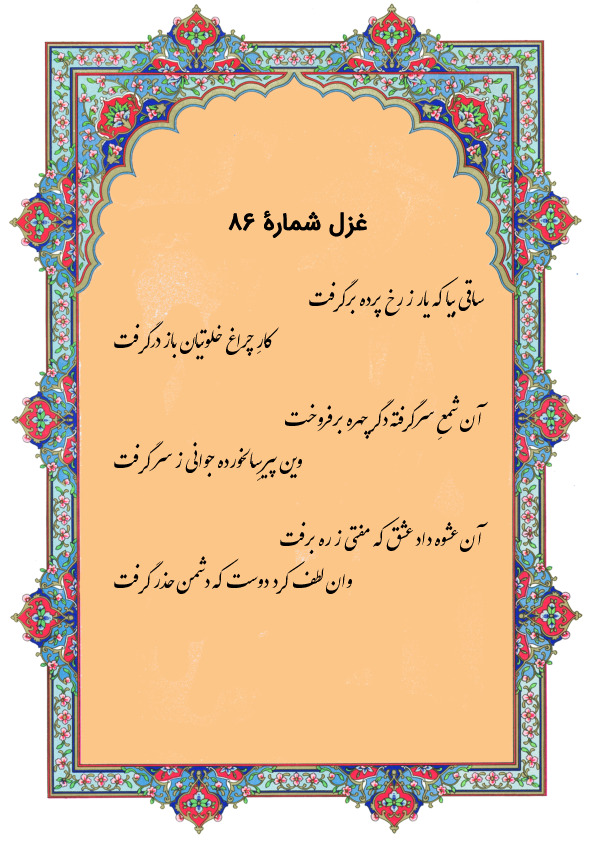 غزل شمارهٔ ۸۶
ساقی بیا که یار ز رخ پرده برگرفت
کارِ چراغ خلوتیان باز درگرفت
آن شمعِ سرگرفته دگر چهره برفروخت
وین پیرِ سالخورده جوانی ز سر گرفت
آن عشوه داد عشق که مفتی ز ره برفت
وان لطف کرد دوست که دشمن حذر گرفت